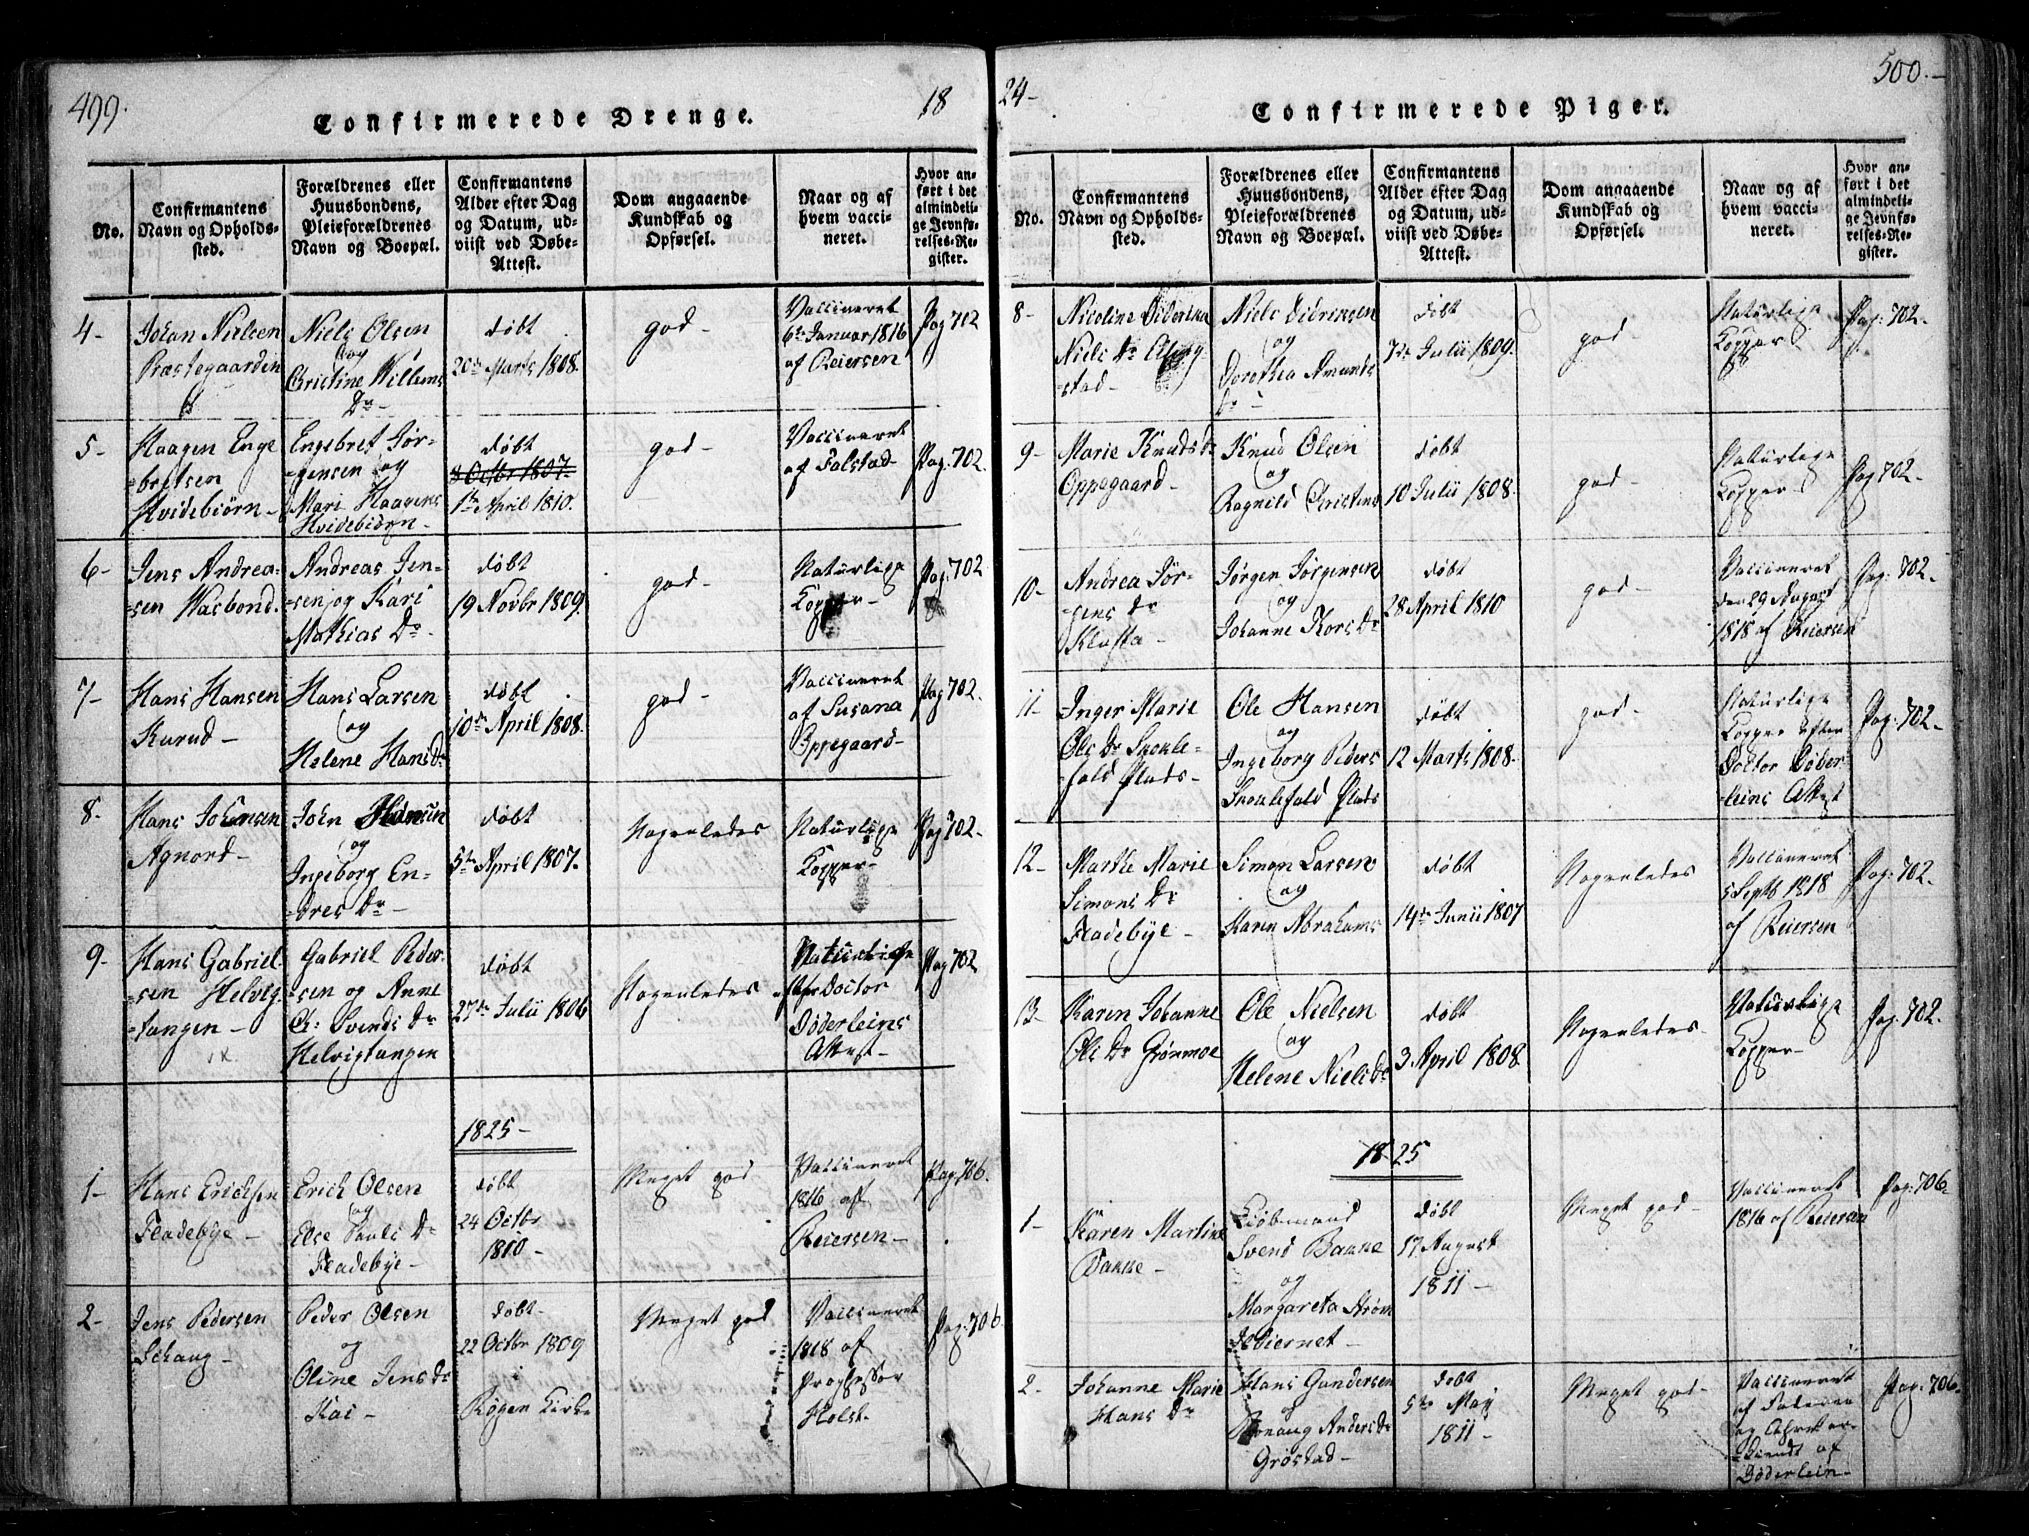 499.
18
Confirmerede Drenge.
No.
Confirmantens
Navn og Opholds-
sted.
Forældrenes eller
Huusbondens,
Pleieforældrenes
Navn og Boepæl.
Confirmantens
Alder efter Dag
og Datum, ud-
viist ved Døbe-
Attest.
Dom angaaende
Kundskab og
Opførsel.
Naar og af
hvem vacci-
neret.
Hvor an-
ført i det
almindeli-
ge Jevnfø-
relses-Re-
gister.
4-
Johan Nielsen
Præstegaarden
Niels Olsen
og
Christine Willums
Dr-
døbt
20de Marts 1808.
god-
Vaccineret
6te Januar 1816
af Reiersen
Pag 702
5-
Haagen Enge
=bretsen
Hvidebiørn-
Engebret Jør-
=gensen og
Mari Haagens
Hvidebiørn-
døbt
8 Octbr 1807-
1te April 1810.
god-
Vaccineret
af Falstad-
Pag: 702.
6-
Jens Andrea-
=sen Wasbond.
Andreas Jen-
=sen og Kari
Mathias Dr-
døbt
19 Novbr 1809.
god-
Naturlige
Kopper-
Pag: 702
7-
Hans Hansen
Kurud-
Hans Larsen
og
Helene Hans Dr
døbt
10de April 1808.
god-
Vaccineret
af Susana
Oppegaard-
Pag 702.
8-
Hans Johnsen
Agnord-
John Hansen
og
Ingeborg En-
=dres Dr-
døbt
5te April 1807.
Nogenledes
Naturlige
Kopper-
Pag 702.
9-
Hans Gabriel
=sen Helvig
=tangen-
Gabriel Peder
=sen og Anne
Ch: Svends Dr
Helvigtangen
døbt
27de Julii 1806
Nogenledes
Naturlige
efter Doctor
Døderleins
Attest-
Pag 702
1825-
1-
Hans Erichsen
Fladebye-
Erich Olsen
og
Else Pauls Dr
Fladebye-
døbt
24 Octbr
1810-
Meget god
Vaccineret
1816 af
Reiersen-
Pag. 706.
2-
Jens Pedersen
Schaug-
Peder Olsen
og
Oline Jens Dr
Kai-
døbt-
22 Octbr 1809
i
Røgen Kirke
Meget god
Vaccineret
1818 af
Professor
Holst-
Pag: 706
24-
500.-
Confirmerede Piger.
No.
Confirmantens
Navn og Opholds-
sted.
Forældrenes eller
Huusbondens,
Pleieforældrenes
Navn og Boepæl.
Confirmantens
Alder efter Dag
og Datum, ud-
viist ved Døbe-
Attest.
Dom angaaende
Kundskab og
Opførsel.
Naar og af
hvem vacci-
neret.
Hvor an-
ført i det
almindeli-
ge Jevnfø-
relses-Re-
gister.
8-
Nicoline
Niels Dr
=stad-
Niels
og
Dorothea Amunds
Dr-
døbt
7de Julii 1809.
god-
Naturlige
Kopper
Pag: 702.
9-
Marie Knuds Dr
Oppegaard-
Knud Olsen
og
Ragnild Christens
døbt
10 Julii 1808.
god-
Naturlige
Kopper-
Pag 702.
10-
Andrea Jør-
gens Dr
Klufta-
Jørgen Jørgensen
og
Johanne Kors Dr
døbt
28 April 1810
god-
Vaccineret
den 29 August
1818 af Reiersen
Pag: 702.
11-
Inger Marie
Ols Dr
=fald Plads-
Ole Hansen
og
Ingeborg Peders
Plads
døbt
12 Marts 1808.
god-
Naturlige
Kopper efter
Doctor Døder-
leins Attest
Pag: 702.
12-
Marthe Marie
Simons Dr
Fladebye-
Simon Larsen
og
Karen Abrahams
døbt
14de Junii 1807
Nogenledes
Vaccineret
5 Septb 1818
af Reiersen
Pag: 702.
13-
Karen Johanne
Ols Dr Grønmoe
Ole Nielsen
og
Helene Niels Dr
døbt
3 April 1808.
Nogenledes-
Naturlige
Kopper-
Pag. 702.
1825
1-
Karen Martine
Banke-
Kiøbmand
Svend Banke
og
Margareta Strøm
døbt
17 August
1811-
Meget god-
Vaccineret
1816 af Reiersen
Pag: 706
2-
Johanne Marie
Hans Dr
Hans Gundersen
og
Anders Dr
Grøstad-
døbt
5te May
1811-
Meget god-
Vaccineret
af
og
af
Døderlein-
Pag: 706.